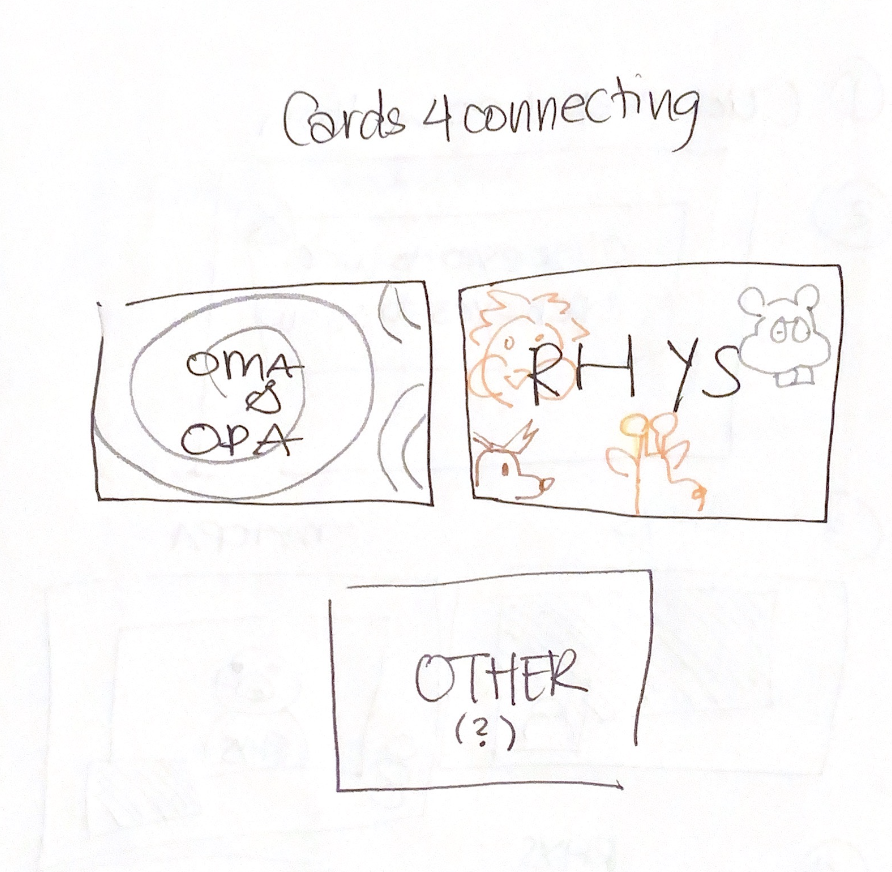 Cards 4 connecting
OMA
&
OPA
RHYS
OTHER
(?)